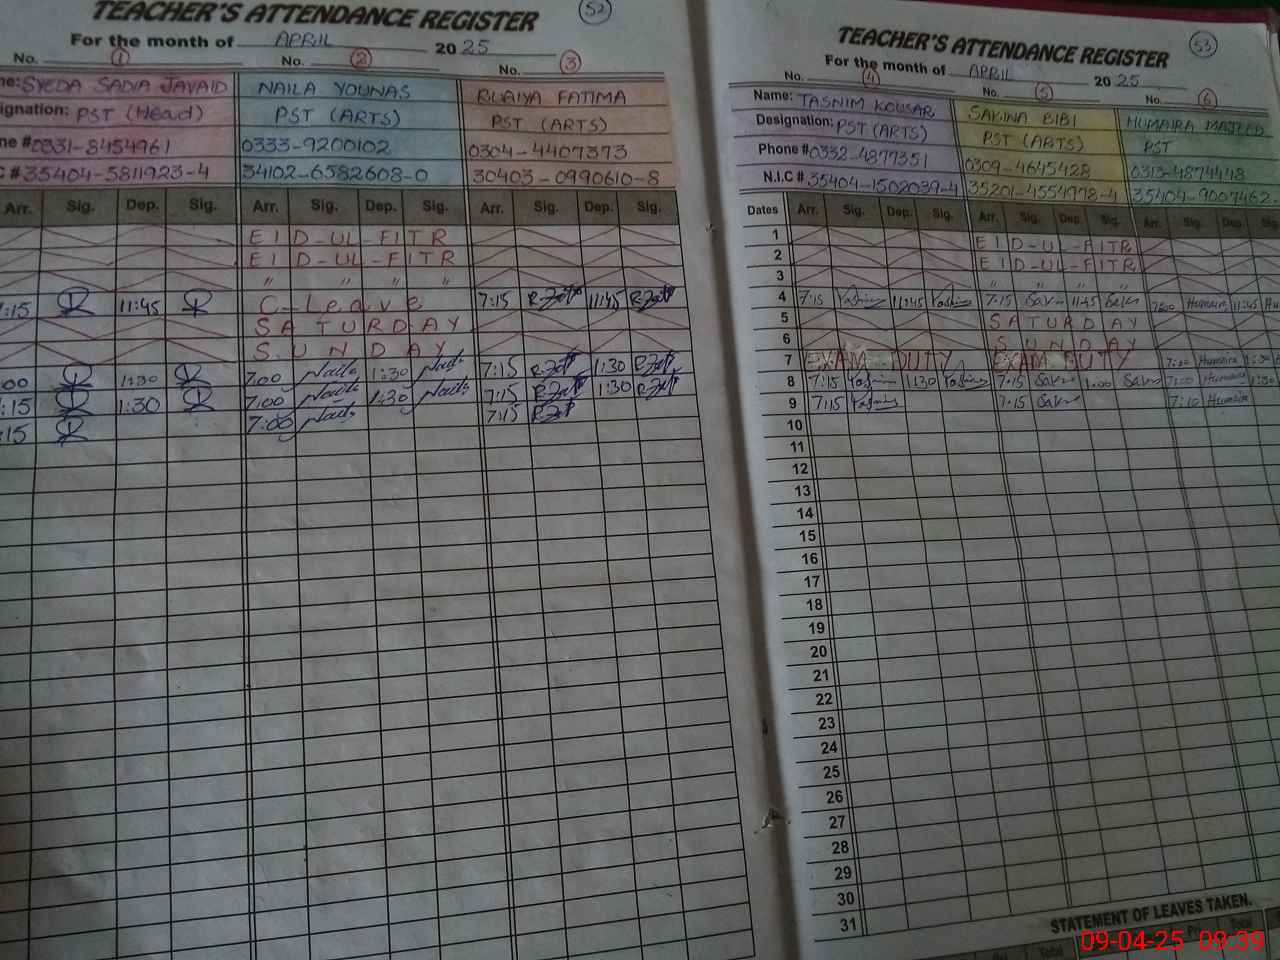 TEACHER'S ATTENDANCE REGISTER
52
For the month of APRIL 2025
No. 1 No. 2 No. 3
me: SYEDA SADIA JAVAID NAILA YOUNAS RUQIYA FATIMA
signation: PST (Head) PST (ARTS) PST (ARTS)
ne # 0331-8454961 0333-9200102 0304-4407373
C # 35404-5811923-4 34102-6582608-0 30403-0990610-8
Arr. Sig. Dep. Sig. Arr. Sig. Dep. Sig. Arr. Sig. Dep. Sig.
EID-UL-FITR
EID-UL-FITR
" " " "
7:15 11:45 C-Leave 7:15 11:45
SATURDAY
SUNDAY
:00 1:30 7:00 1:30 7:15 1:30
:15 1:30 7:00 1:30 7:15 1:30
:15 7:00 7:15
TEACHER'S ATTENDANCE REGISTER
53
For the month of APRIL 2025
No. 4 No. 5 No. 6
Name: TASNIM KOUSAR SAKINA BIBI HUMAIRA MAJEED
Designation: PST (ARTS) PST (ARTS) PST
Phone # 0332-4877351 0309-4645428 0313-4874448
N.I.C # 35404-1502039-4 35201-4554978-4 35404-9007462-
Dates Arr. Sig. Dep. Sig. Arr. Sig. Dep. Sig. Arr. Sig. Dep Sig
1 EID-UL-FITR
2 EID-UL-FITR
3 " " " "
4 7:15 11:45 7:15 11:45 Humaira 11:45
5 SATURDAY
6 SUNDAY
7 EXAM DUTY EXAM DUTY Humaira
8 7:15 1:30 7:15 1:00 7:00 Humaira 1:30
9 7:15 7:15 7:10 Humaira
10
11
12
13
14
15
16
17
18
19
20
21
22
23
24
25
26
27
28
29
30
31
STATEMENT OF LEAVES TAKEN.
Total Pri Total
09-04-25 09:39